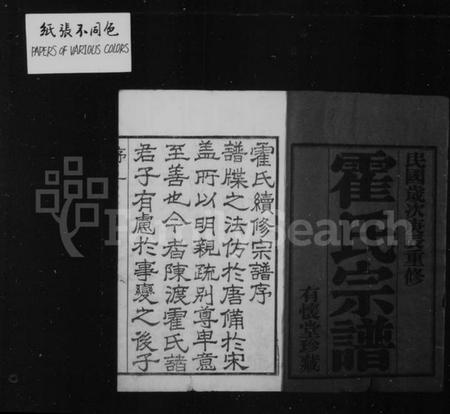 紙張不同色
PAPERS OF VARIOUS COLORS
民國歲次
重修
霍氏宗譜
有懷堂珍藏
霍氏續修宗譜序
譜牒之法仿於唐備於宋
蓋所以明親疏別尊卑意
至善也今者陳渡霍氏譜
君子有慮於事變之後子
序一
FamilySearch